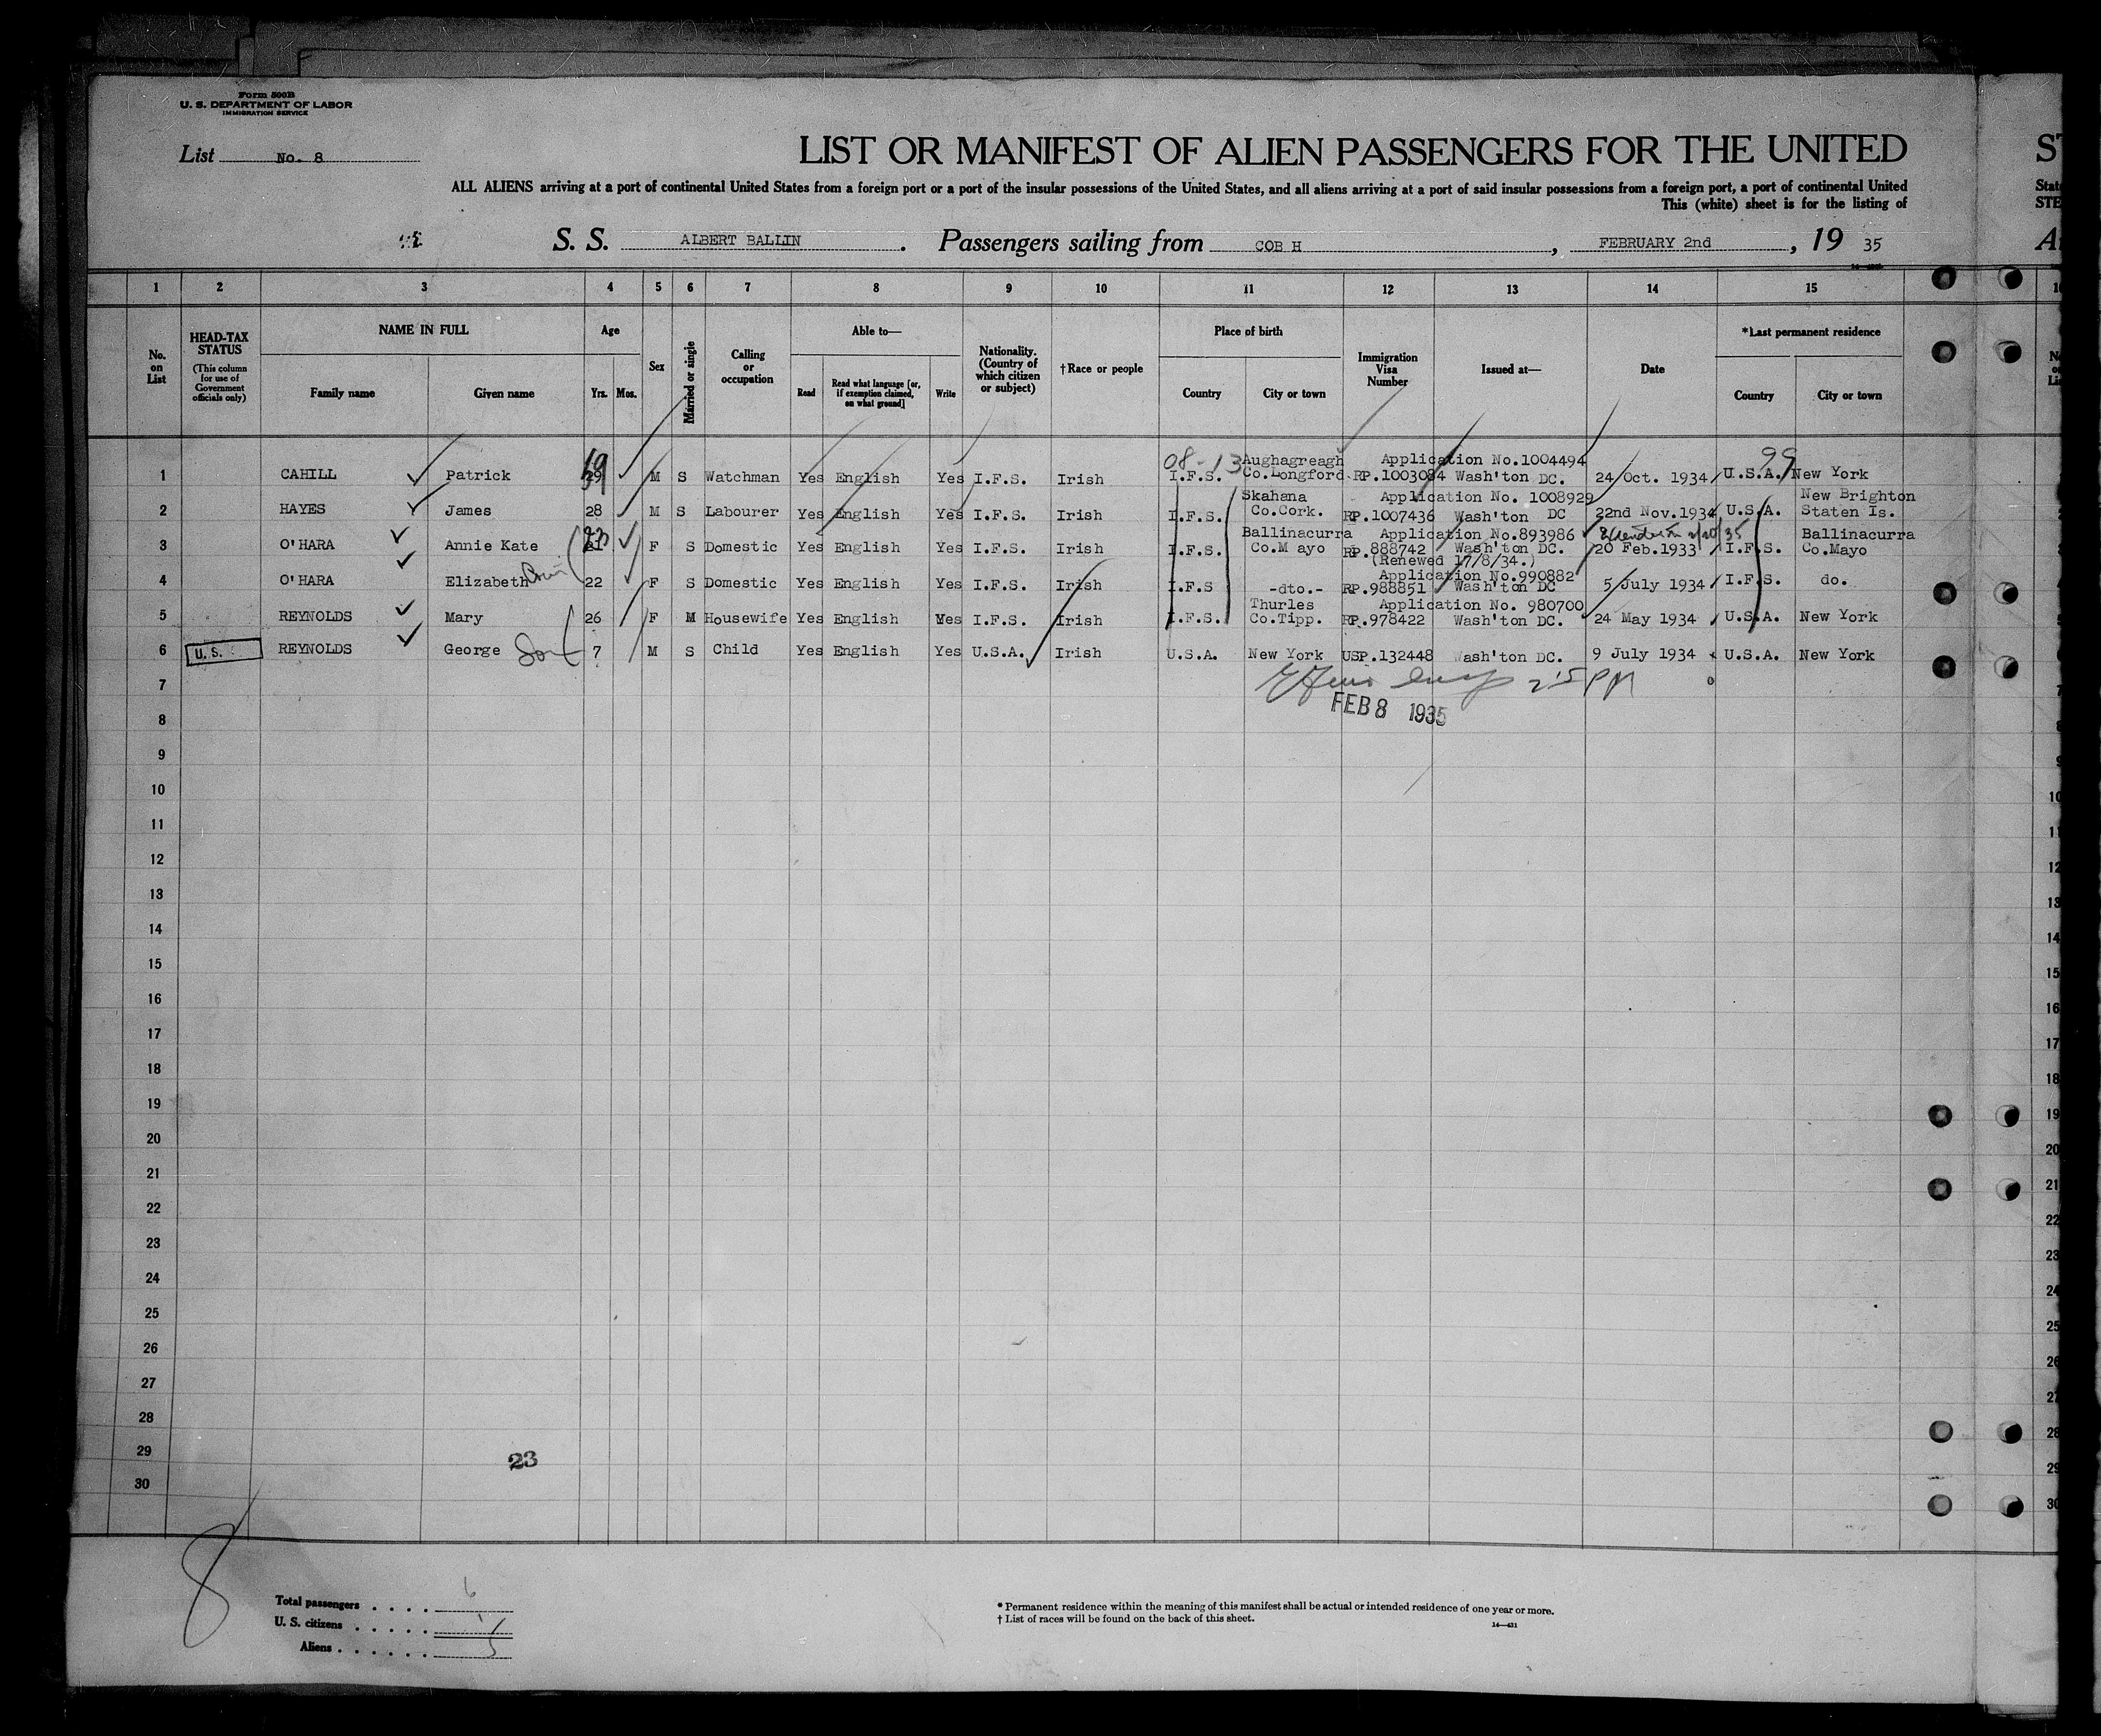 Form 500B
U. S. DEPARTMENT OF LABOR
IMMIGRATION SERVICE
List No. 8
LIST OR MANIFEST OF ALIEN PASSENGERS FOR THE UNITED
ALL ALIENS arriving at a port of continental United States from a foreign port or a port of the insular possessions of the United States, and all aliens arriving at a port of said insular possessions from a foreign port, a port of continental United
This (white) sheet is for the listing of
S. S. ALBERT BALLIN . Passengers sailing from COB H , FEBRUARY 2nd , 19 35
1 2 3 4 5 6 7 8 9 10 11 12 13 14 15
No. on List
HEAD-TAX STATUS (This column for use of Government officials only)
NAME IN FULL Family name Given name
Age Yrs. Mos.
Sex
Married or single
Calling or occupation
Able to— Read Read what language [or, if exemption claimed, on what ground] Write
Nationality. (Country of which citizen or subject)
†Race or people
Place of birth Country City or town
Immigration Visa Number
Issued at—
Date
*Last permanent residence Country City or town
08-13 Aughagreagh Application No.1004494 99
1 CAHILL Patrick M S Watchman Yes English Yes I.F.S. Irish I.F.S. Co.Longford RP.1003084 Wash'ton DC. 24 Oct. 1934 U.S.A. New York
Skahana Application No. 1008929 New Brighton
2 HAYES James 28 M S Labourer Yes English Yes I.F.S. Irish I.F.S. Co.Cork. RP.1007436 Wash'ton DC 22nd Nov.1934 U.S.A. Staten Is.
Ballinacurra Application No.893986 Ballinacurra
3 O'HARA Annie Kate F S Domestic Yes English Yes I.F.S. Irish I.F.S. Co.M ayo RP.888742 Wash'ton DC. 20 Feb.1933 I.F.S. Co.Mayo
(Renewed 17/8/34.)
Application No.990882
4 O'HARA Elizabeth 22 F S Domestic Yes English Yes I.F.S. Irish I.F.S -dto.- RP.988851 Wash'ton DC 5 July 1934 I.F.S. do.
Thurles Application No. 980700
5 REYNOLDS Mary 26 F M Housewife Yes English Yes I.F.S. Irish I.F.S. Co.Tipp. RP.978422 Wash'ton DC. 24 May 1934 U.S.A. New York
6 U. S. REYNOLDS George Son 7 M S Child Yes English Yes U.S.A. Irish U.S.A. New York USP.132448 Wash'ton DC. 9 July 1934 U.S.A. New York
7
FEB 8 1935
8
9
10
11
12
13
14
15
16
17
18
19
20
21
22
23
24
25
26
27
28
29
23
30
8
Total passengers . . . . 6
U. S. citizens . . . . . 1
Aliens . . . . . . 5
* Permanent residence within the meaning of this manifest shall be actual or intended residence of one year or more.
† List of races will be found on the back of this sheet.
14—431